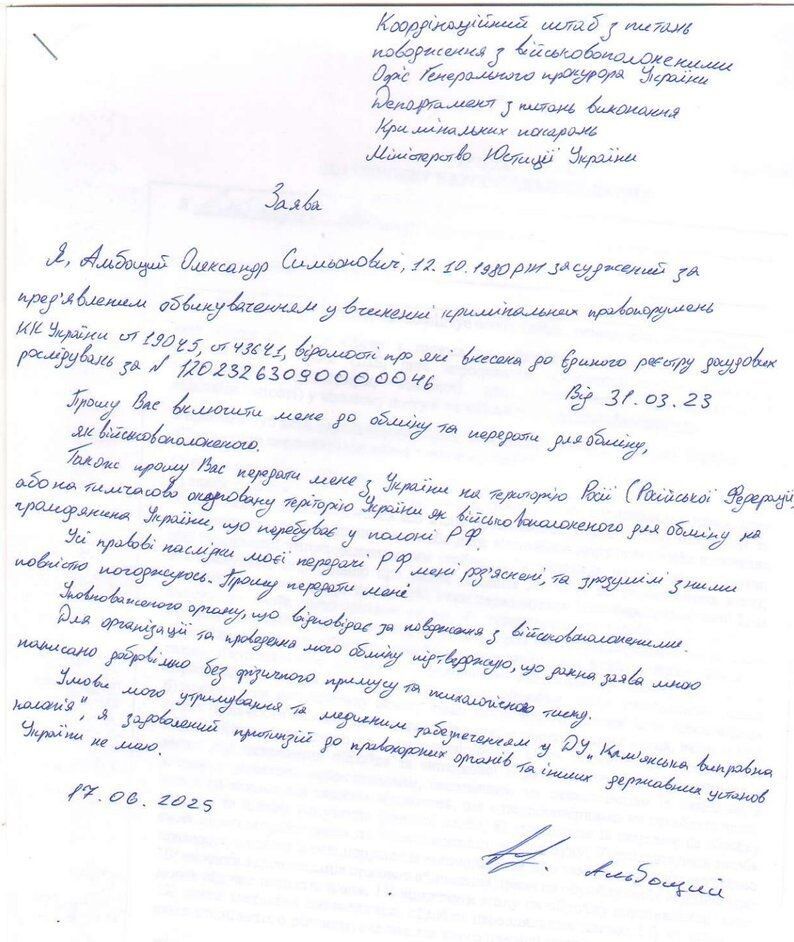 Координаційний штаб з питань
поводження з військовополоненими
Офіс Генерального прокурора України
Департамент з питань виконання
Кримінальних покарань
Міністерство Юстиції України
Заява
Я, Альбощий Олександр Симьонович, 12.10.1980 р.н засуджений за
пред'явлением обвинуваченням у вчиненні кримінальних правопорушень
КК України ст 190 ч5, ст 436 ч1, відомості про які внесена до Єдиного реєстру досудових
розслідувань за № 12023263090000046 Від 31.03.23
Прошу Вас включити мене до обміну та передати для обміну,
як військовополоненого.
Також прошу Вас передати мене з України на територію Росії (Російської Федерації)
або на тимчасово окуповану територію України як військовополоненого для обміну на
громадянина України, що перебуває у полоні РФ.
Усі правові наслідки моєї передачі РФ мені роз'яснені, та зрозумілі з ними
повністю погоджуюсь. Прошу передати мене
Уповноваженого органу, що відповідає за поводження з військовополоненими.
Для організації та проведення мого обміну підтверджую, що данна заява мною
написано добровільно без фізичного примусу та психологічного тиску.
Умови мого утримування та медичним забезпеченням у ДУ „Кам'янська виправна
колонія", я задоволений притензій до правохоронних органів та інших державних установ
України не маю.
17.06.2025
Альбощий